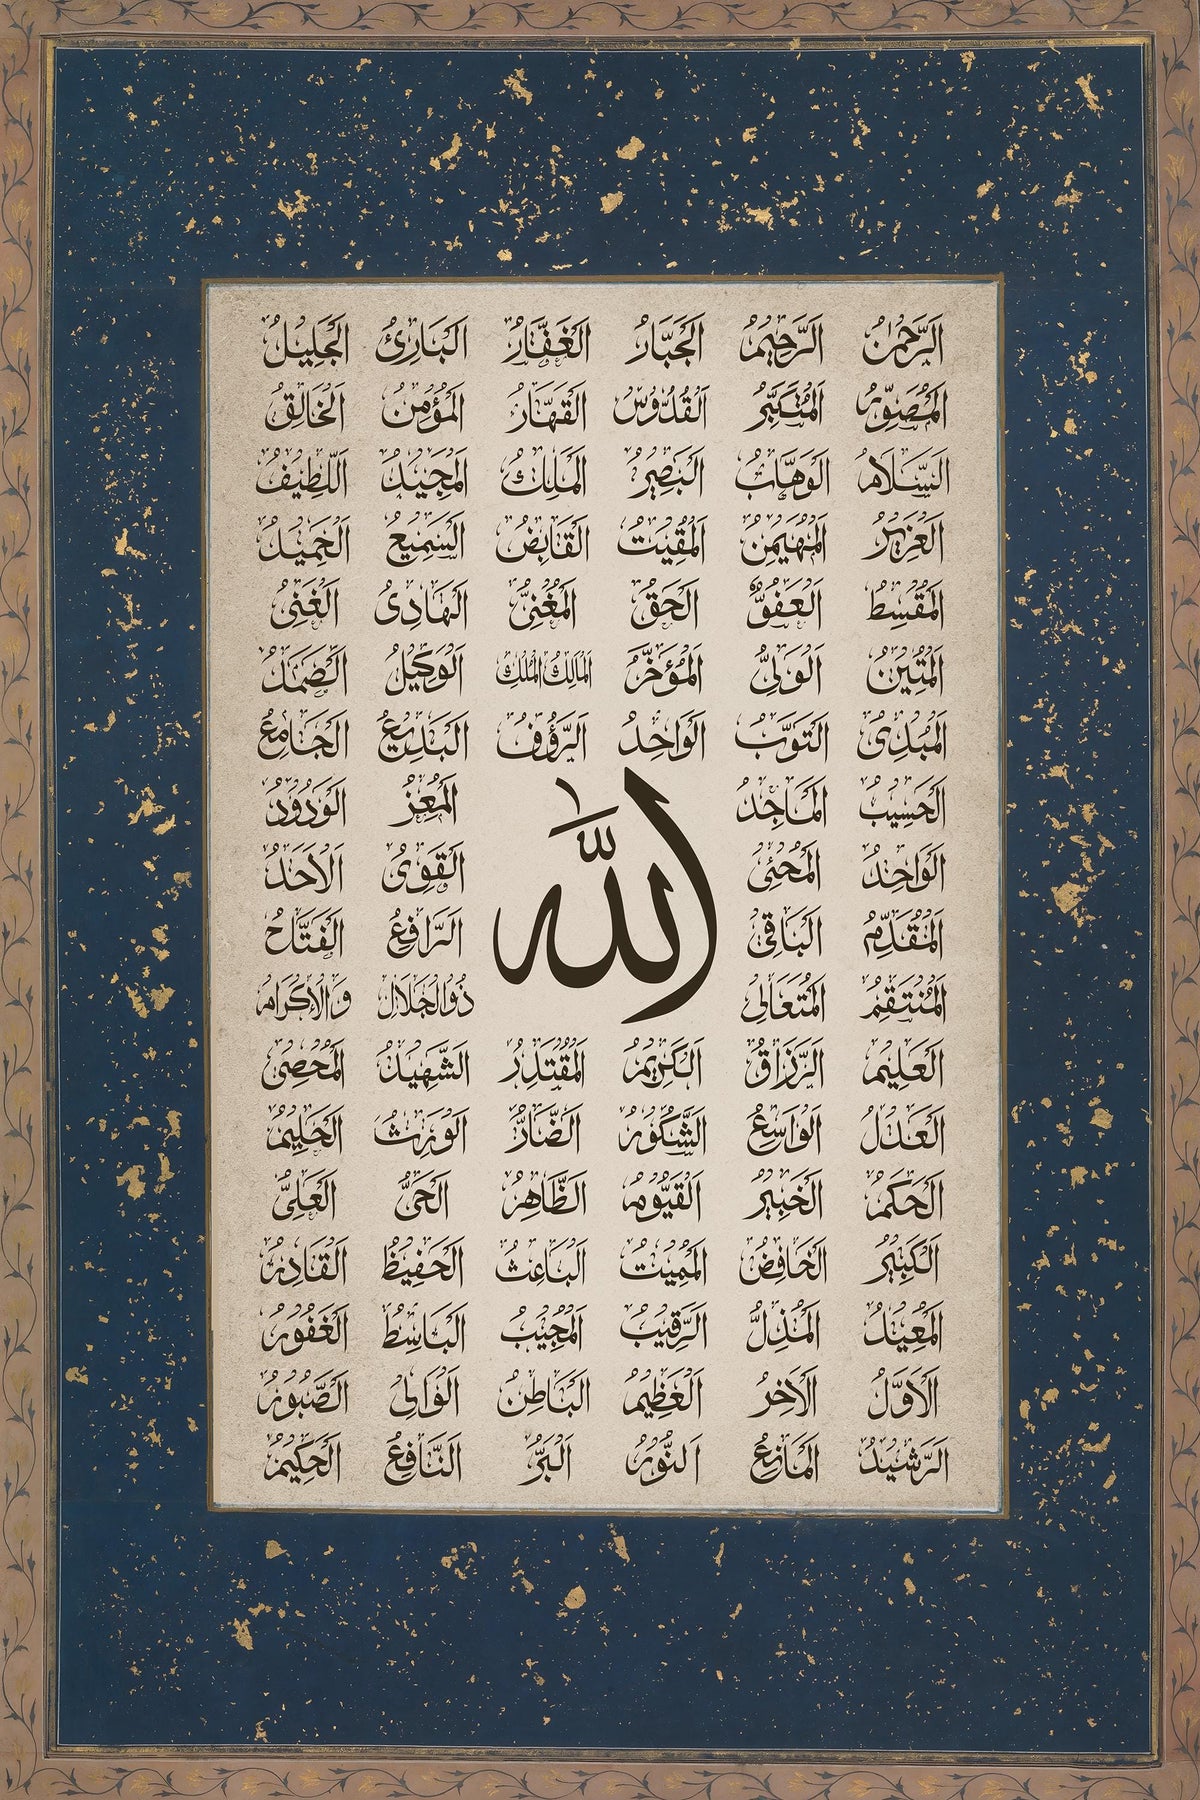 الرَّحْمٰنُ الرَّحِيْمُ الْجَبَّارُ الْغَفَّارُ الْبَارِئُ الْجَلِيْلُ
الْمُصَوِّرُ الْمُتَكَبِّرُ الْقُدُّوْسُ الْقَهَّارُ الْمُؤْمِنُ الْخَالِقُ
السَّلَامُ الْوَهَّابُ الْبَصِيْرُ الْمَلِكُ الْمَجِيْدُ اللَّطِيْفُ
الْعَزِيْزُ الْمُهَيْمِنُ الْمُقِيْتُ الْقَابِضُ السَّمِيْعُ الْحَمِيْدُ
الْمُقْسِطُ الْعَفُوُّ الْحَقُّ الْمُغْنِيُّ الْهَادِى الْغَنِىُّ
الْمَتِيْنُ الْوَلِىُّ الْمُؤَخِّرُ الْمَالِكُ الْمُلْكِ الْوَكِيْلُ الصَّمَدُ
الْمُبْدِئُ التَّوَّبُ الْوَاحِدُ الرَّؤُفُ الْبَدِيْعُ الْجَامِعُ
الْحَسِيْبُ الْمَاجِدُ الْمُعِزُّ الْوَدُوْدُ
اللّٰه
الْوَاحِدُ الْمُحْيِى الْقَوِىُّ الْاَحَدُ
الْمُقَدِّمُ الْبَاقِى الرَّافِعُ الْفَتَّاحُ
الْمُنْتَقِمُ الْمُتَعَالِى ذُوالْجَلَالِ وَالْاِكْرَامِ
الْعَلِيْمُ الرَّزَّاقُ الْكَرِيْمُ الْمُقْتَدِرُ الشَّهِيْدُ الْمُحْصِى
الْعَدْلُ الْوَاسِعُ الشَّكُوْرُ الضَّارُّ الْوَرِثُ الْحَلِيْمُ
الْحَكَمُ الْخَبِيْرُ الْقَيُّوْمُ الظَّاهِرُ الْحَىُّ الْعَلِىُّ
الْكَبِيْرُ الْخَافِضُ الْمُمِيْتُ الْبَاعِثُ الْحَفِيْظُ الْقَادِرُ
الْمُعِيْدُ الْمُذِلُّ الرَّقِيْبُ الْمُجِيْبُ الْبَاسِطُ الْغَفُوْرُ
الْاَوَّلُ الْاٰخِرُ الْعَظِيْمُ الْبَاطِنُ الْوَالِى الصَّبُوْرُ
الرَّشِيْدُ الْمَانِعُ النُّوْرُ الْبَرُّ النَّافِعُ الْحَكِيْمُ